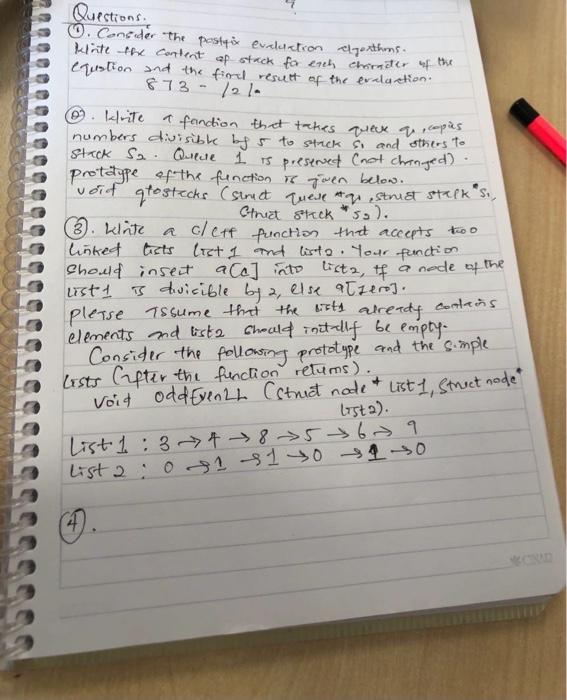 Questions.
①. Consider the postfix evaluation algorithms.
Write the content of stack for each character of the
equation and the final result of the evaluation.
8 7 3 - / 2 / .
②. Write a function that takes queue q1, copies
numbers divisible by 5 to stack S1 and others to
stack S2. Queue 1 is preserved (not changed).
prototype of the function is given below.
void qtostacks (struct queue *q1, struct stack *S1,
Struct stack *S2).
③. Write a C/C++ function that accepts two
linked lists list 1 and list2. Your function
should insert a into list2, if a node of the
list1 is divisible by 2, else a [zero].
please assume that the list1 already contains
elements and list2 should initially be empty.
Consider the following prototype and the simple
lists (after the function returns).
void oddEvenLL (struct node * list1, struct node*
list2).
List 1 : 3 → 4 → 8 → 5 → 6 → 9
List 2 : 0 → 1 → 1 → 0 → 1 → 0
④.